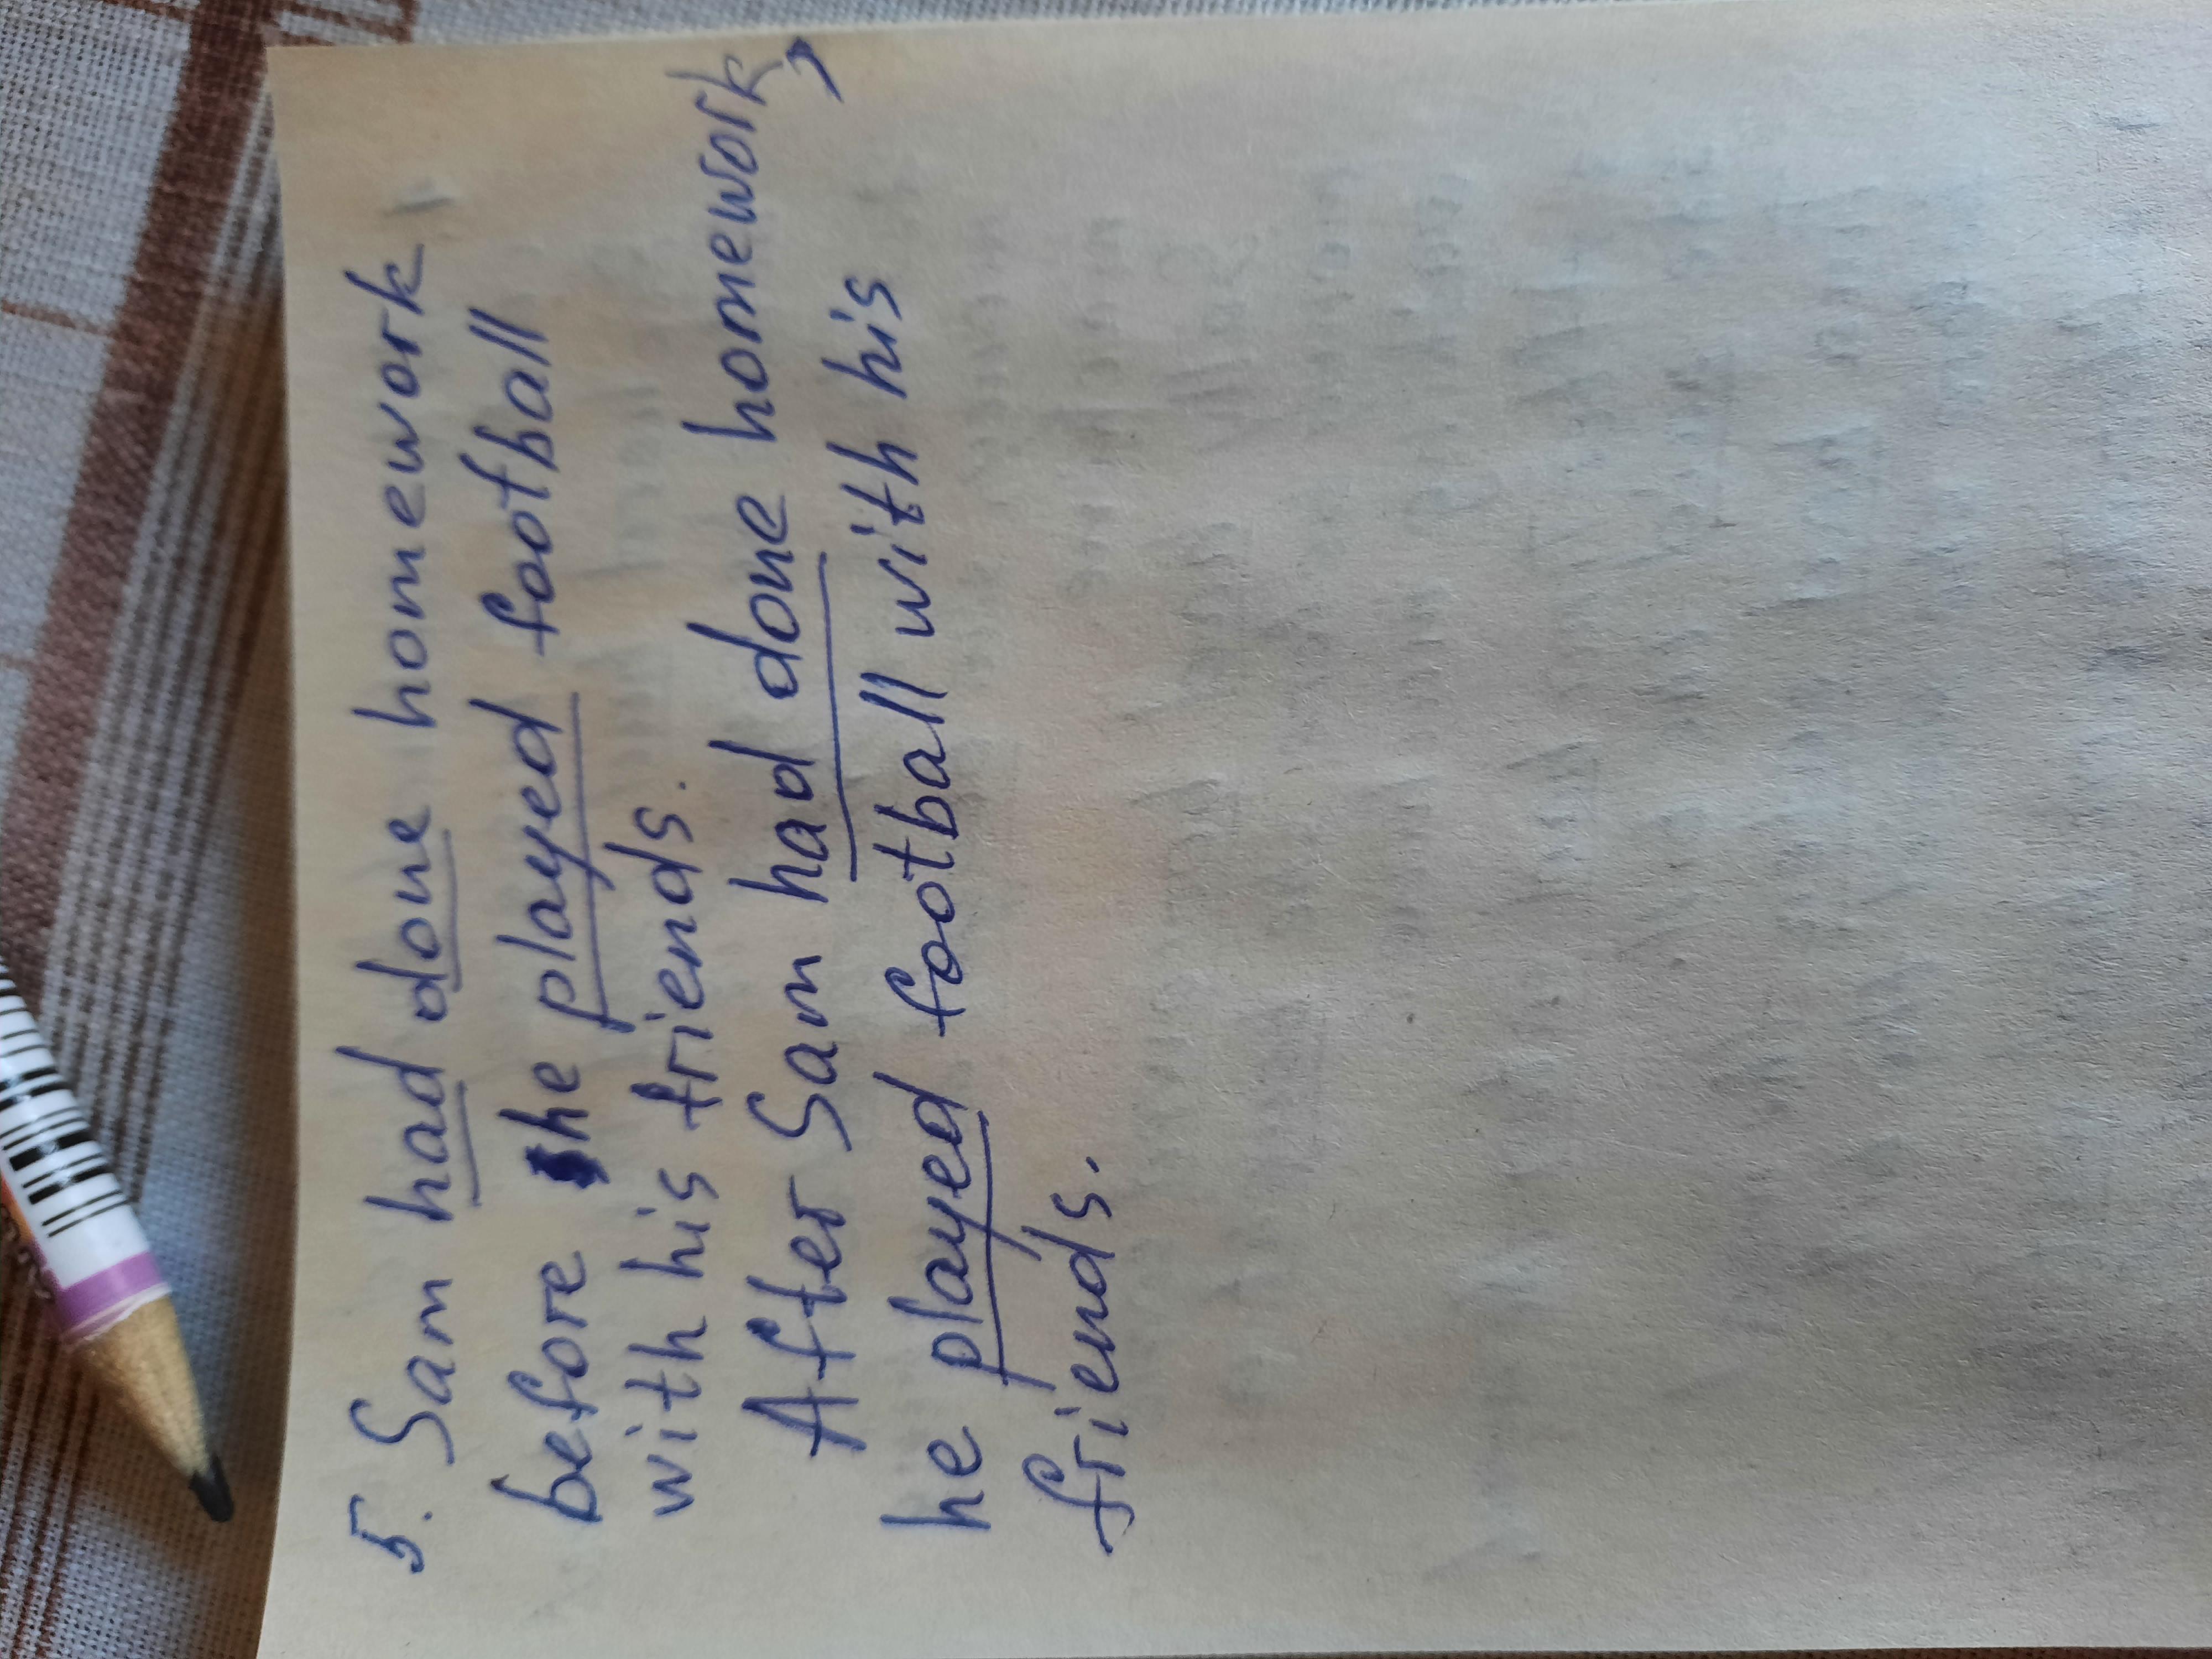 5. Sam had done homework
before he played football
with his friends.
After Sam had done homework,
he played football with his
friends.